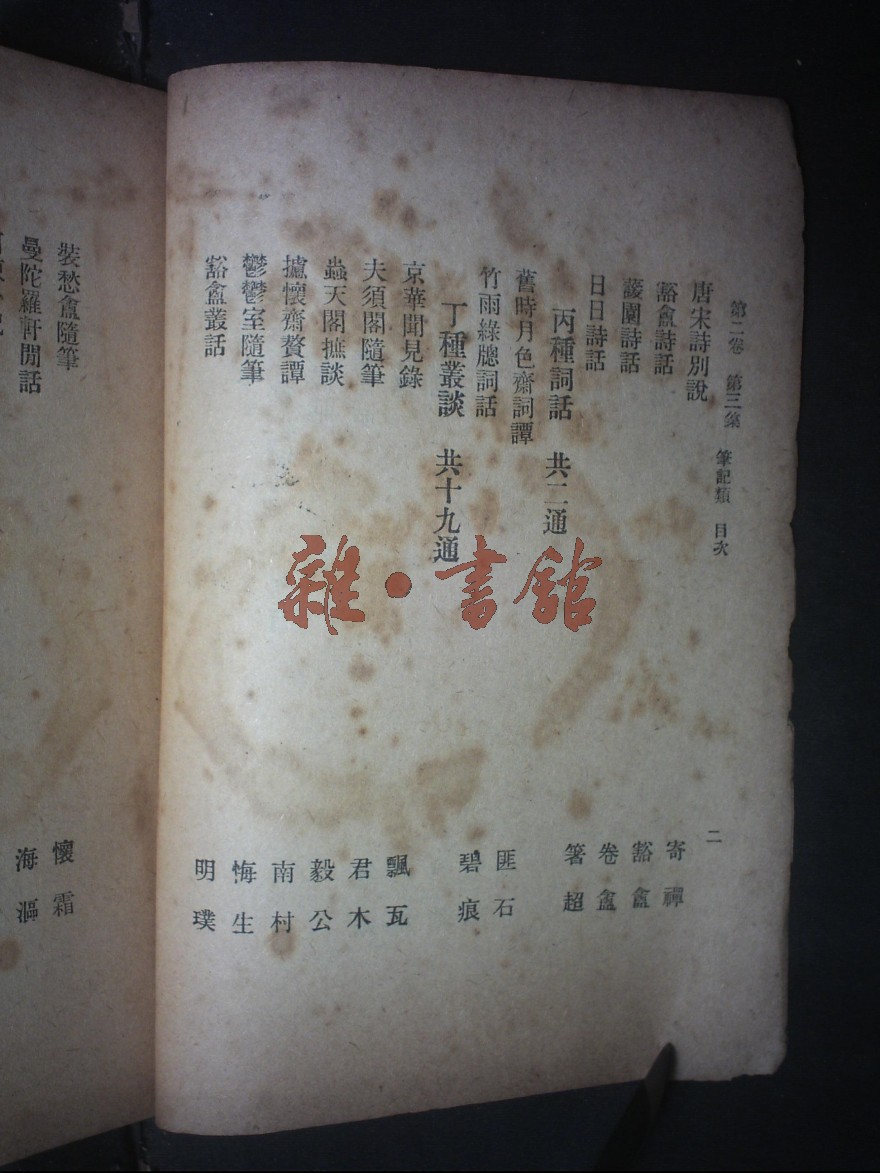 第二卷 第三集 筆記類 目次 二
唐宋詩別說 寄禪
豁盦詩話 豁盦
菱園詩話 卷盦
日日詩話 箸超
丙種詞話 共二通
舊時月色齋詞譚 匪石
竹雨綠牕詞話 碧痕
丁種叢談 共十九通
京華聞見錄 飄瓦
夫須閣隨筆 君木
蟲天閣摭談 毅公
攄懷齋贅譚 南村
鬱鬱室隨筆 悔生
豁盦叢話 明璞
裝愁盦隨筆 懷霜
曼陀羅軒閒話 海漚
雜·書館